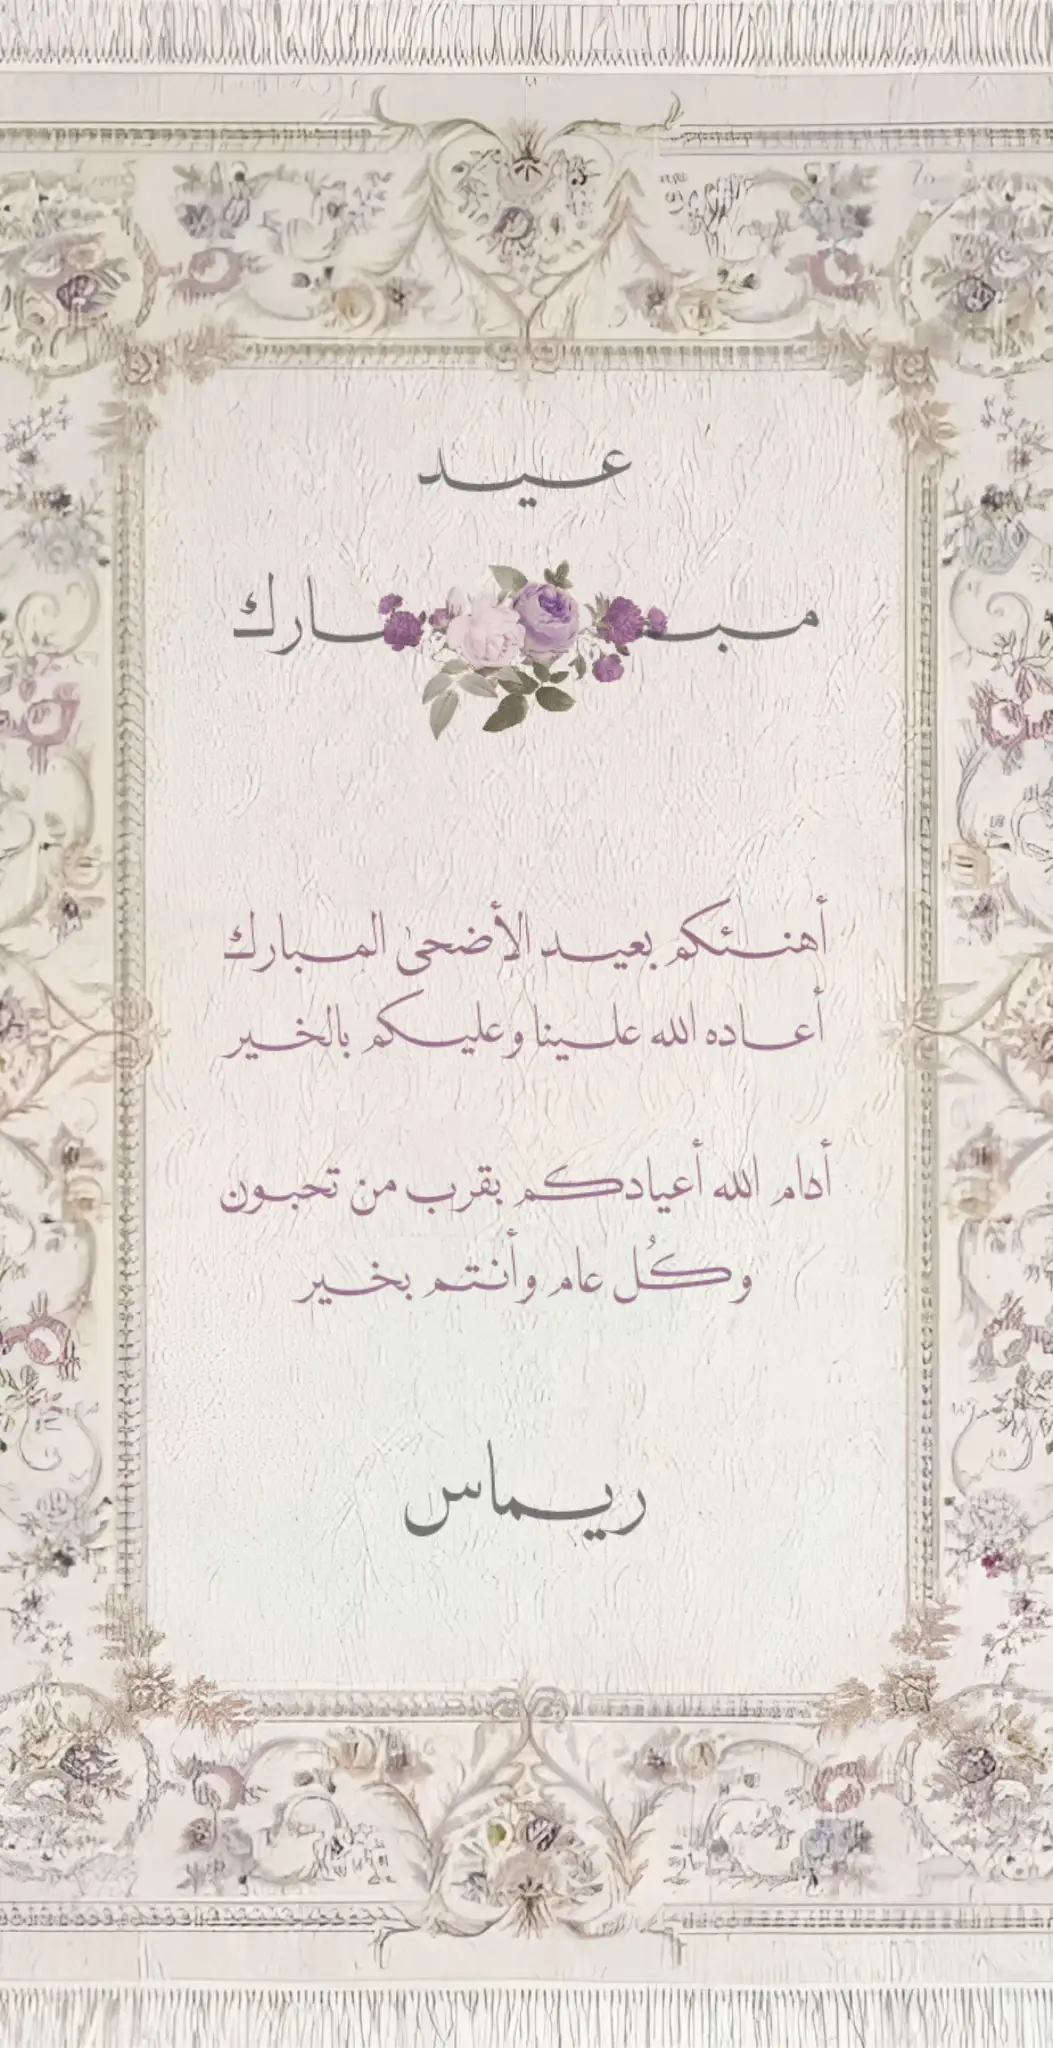 عيد
مبارك
أهنئكم بعيد الأضحىٰ المبارك
أعاده الله علينا وعليكم بالخير
أدام الله أعيادكم بقرب من تحبون
وكُل عام وأنتم بخير
ريماس